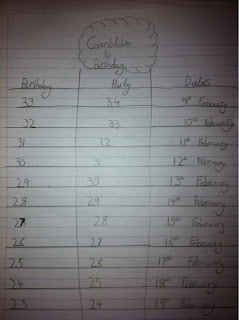 Countdown
to
Birthday
Birthday Party Dates
33 34 9th February
32 33 10th February
31 32 11th February
30 31 12th February
29 30 13th February
28 29 14th February
27 28 15th February
26 27 16th February
25 26 17th February
24 25 18th February
23 24 19th February